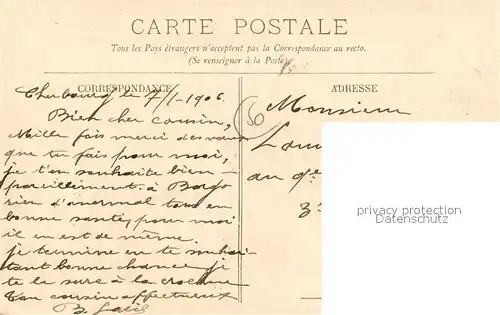 CARTE POSTALE
Tous les Pays étrangers n'acceptent pas la Correspondance au recto.
(Se renseigner à la Poste)
CORRESPONDANCE
Cherbourg le 7/1-1906
Bien cher cousin,
Mille fois merci des vœux
que tu fais pour moi,
je t'en souhaite bien
pareillement. à
rien d'anormal tous en
bonne santé, pour moi
il en est de même.
je termine en te souhai-
tant bonne chance je
te la serre à la
Ton cousin affectueux
B.
ADRESSE
50
Monsieur
au
privacy protection
Datenschutz